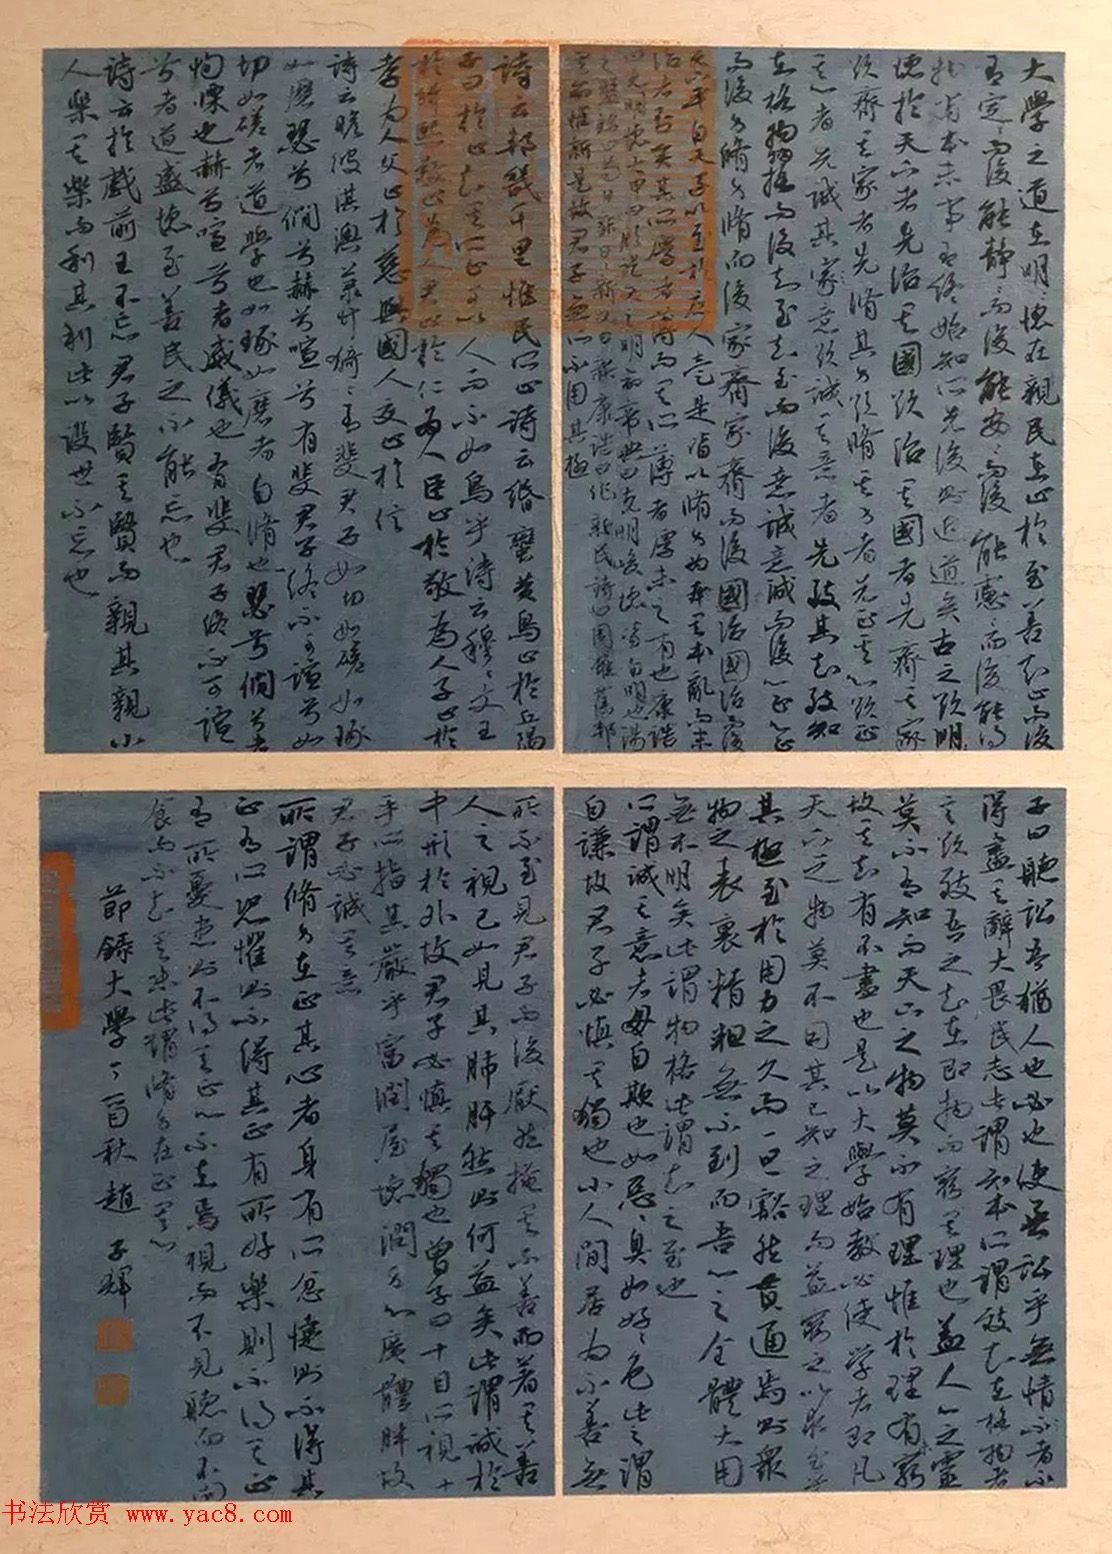 大學之道在明明德在親民在止於至善知止而後
有定定而後能靜靜而後能安安而後能慮慮而後能得
物有本末事有終始知所先後則近道矣古之欲明
德於天下者先治其國欲治其國者先齊其家
欲齊其家者先脩其身欲脩其身者先正其心欲正
其心者先誠其家意欲誠其意者先致其知致知
在格物物格而後知至知至而後意誠意誠而後心正心正
而後身脩身脩而後家齊家齊而後國治國治而後
天下平自天子以至於庶人壹是皆以脩身為本其本亂而末
治者否矣其所厚者薄而其所薄者厚未之有也康誥
曰克明德大甲曰顧諟天之明命帝典曰克明峻德皆自明也湯
之盤銘曰苟日新日日新又日新康誥曰作新民詩曰周雖舊邦
其命惟新是故君子無所不用其極
詩云邦畿千里惟民所止詩云緡蠻黃鳥止於丘隅
子曰於止知其所止可以人而不如鳥乎詩云穆穆文王
於緝熙敬止為人君止於仁為人臣止於敬為人子止於
孝為人父止於慈與國人交止於信
詩云瞻彼淇澳菉竹猗猗有斐君子如切如磋如琢
如磨瑟兮僩兮赫兮喧兮有斐君子終不可諠兮如
切如磋者道學也如琢如磨者自脩也瑟兮僩兮者
恂慄也赫兮喧兮者威儀也有斐君子終不可諠
兮者道盛德至善民之不能忘也
詩云於戲前王不忘君子賢其賢而親其親小
人樂其樂而利其利此以沒世不忘也
子曰聽訟吾猶人也必也使無訟乎無情不者不
得盡其辭大畏民志此謂知本所謂致知在格物者
言欲致吾之知在即物而窮其理也蓋人心之靈
莫不有知而天下之物莫不有理惟於理有窮
故其知有不盡也是以大學始教必使學者即凡
天下之物莫不因其已知之理而益窮之以求至乎
其極至於用力之久而一旦豁然貫通焉則眾
物之表裏精粗無不到而吾心之全體大用
無不明矣此謂物格此謂知之至也
所謂誠其意者毋自欺也如惡惡臭如好好色此之謂
自謙故君子必慎其獨也小人閒居為不善無
所不至見君子而後厭然掩其不善而著其善
人之視己如見其肺肝然則何益矣此謂誠於
中形於外故君子必慎其獨也曾子曰十目所視十
手所指其嚴乎富潤屋德潤身心廣體胖故
君子必誠其意
所謂脩身在正其心者身有所忿懥則不得其
正有所恐懼則不得其正有所好樂則不得其正
有所憂患則不得其正心不在焉視而不見聽而不聞
食而不知其味此謂脩身在正其心
節錄大學
酉秋趙子
书法欣赏 www.yac8.com